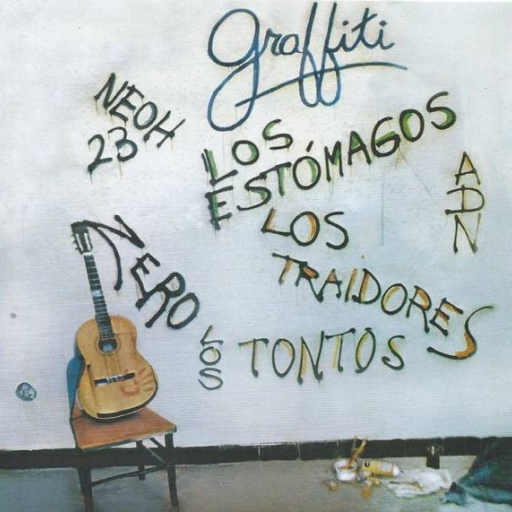 graffiti
NEOH
23
LOS
ESTÓMAGOS
ADN
LOS
TRAIDORES
ZERO
LOS TONTOS